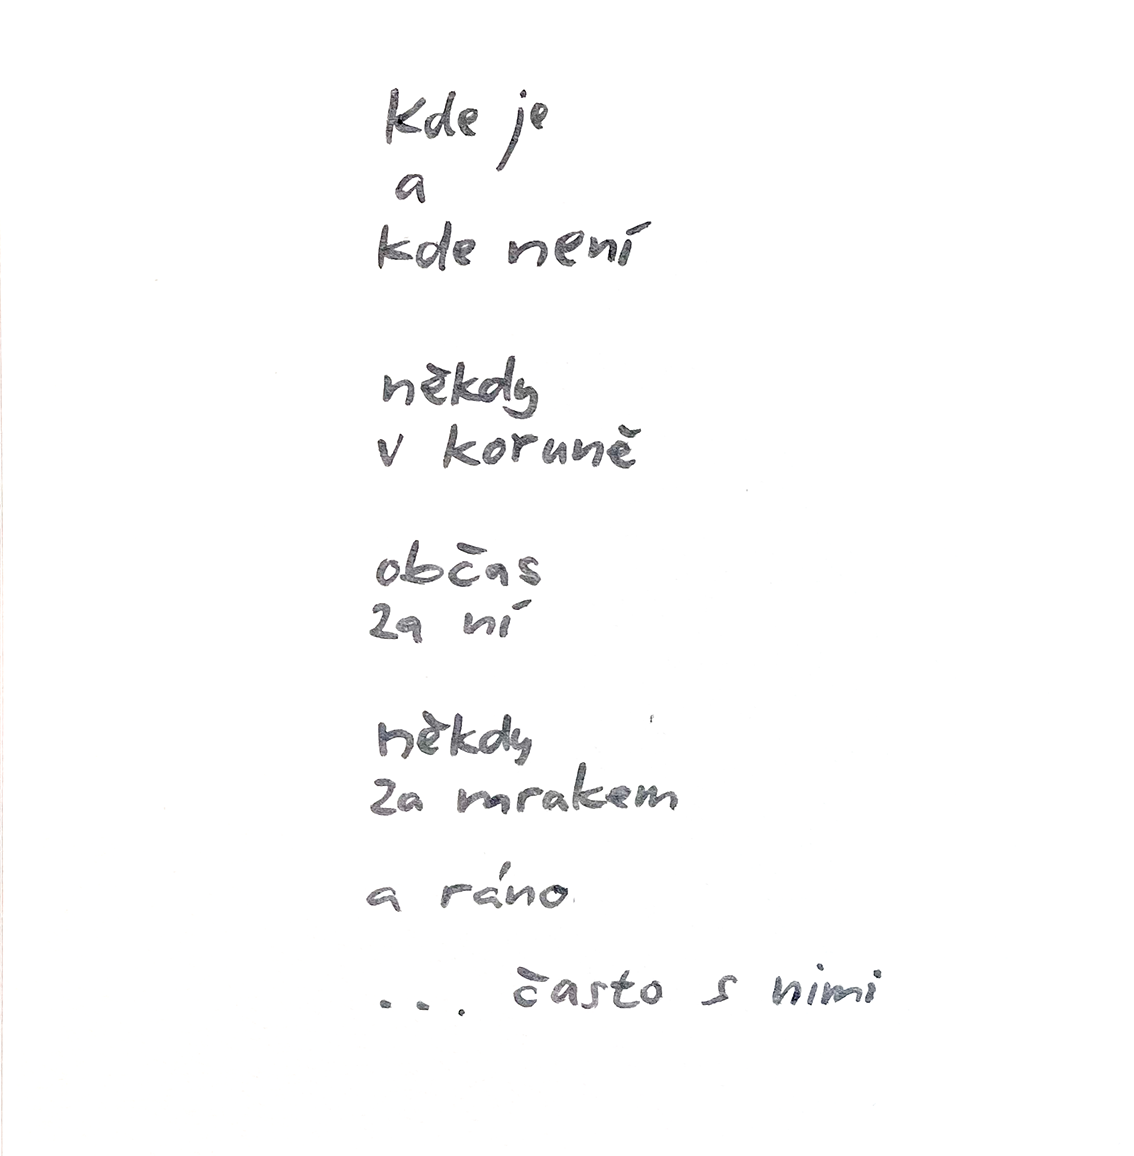 Kde je
a
kde není
někdy
v koruně
občas
za ní
někdy
za mrakem
a ráno
... často s nimi